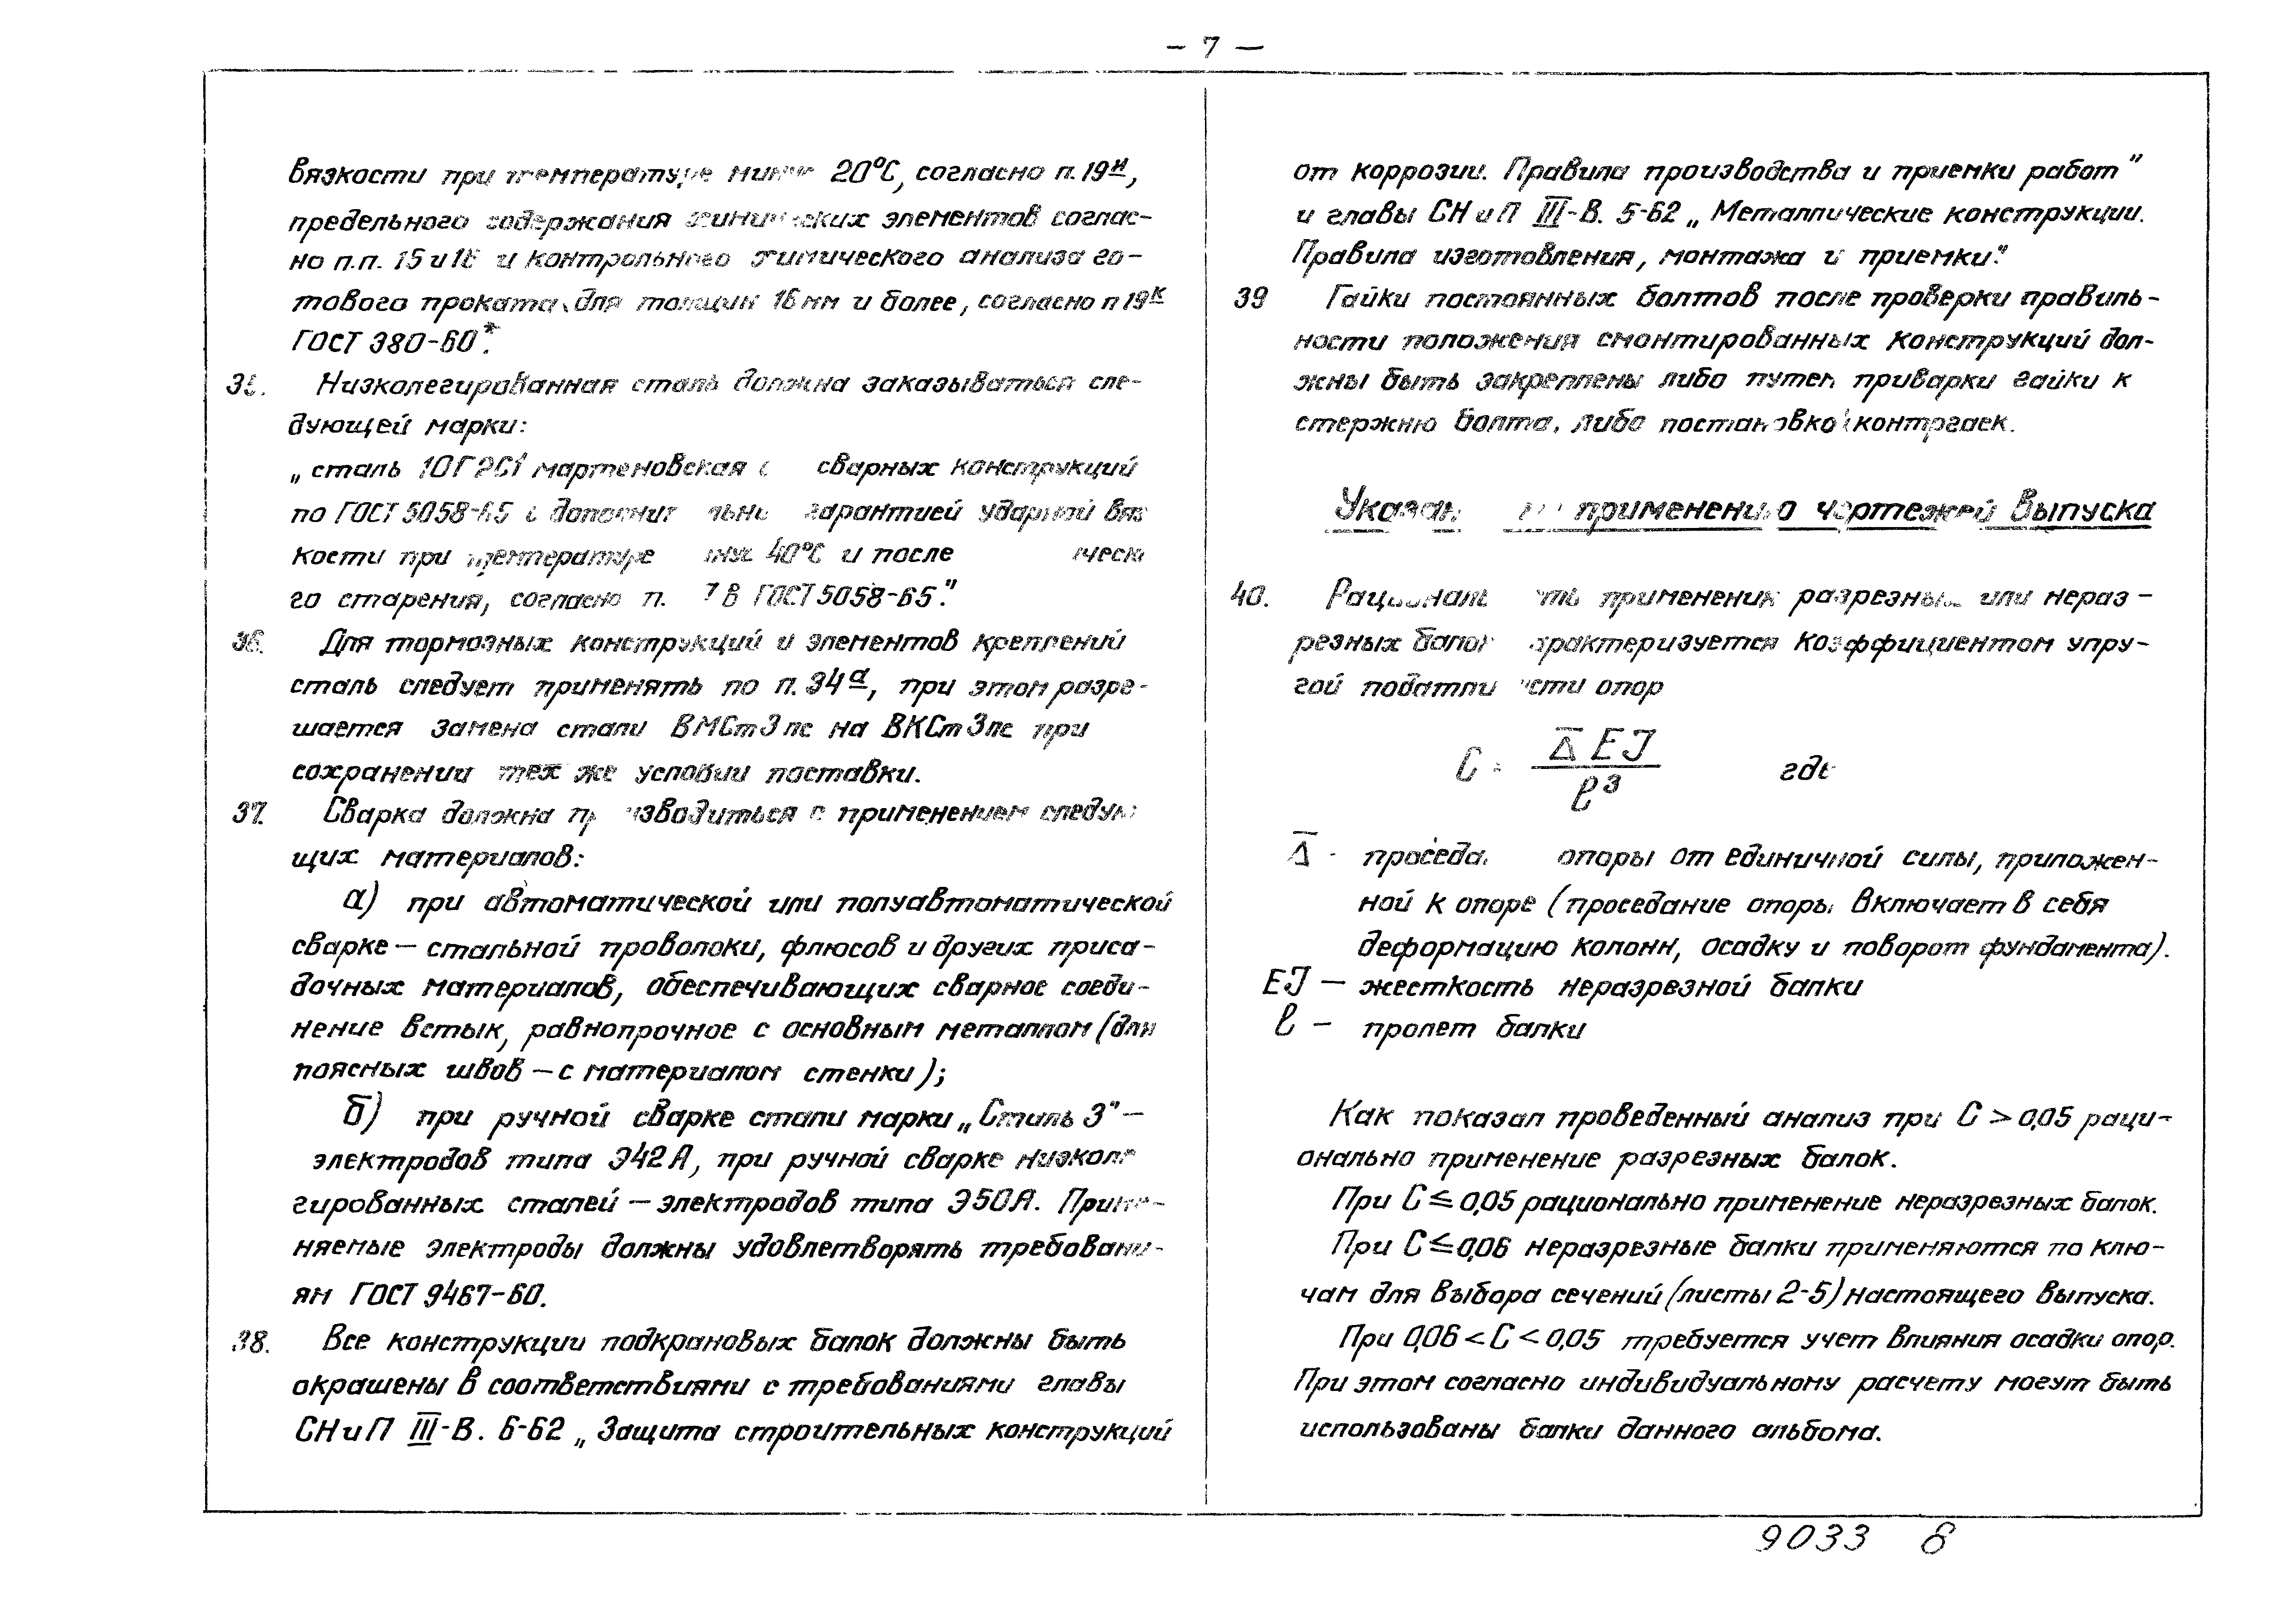 — 7 —
вязкости при температуре минус 20°С, согласно п. 19н,
предельного содержания химических элементов соглас-
но п.п. 15 и 18 и контрольного химического анализа го-
тового проката для толщин 16 мм и более, согласно п 19к
ГОСТ 380-60*.
35. Низколегированная сталь должна заказываться сле-
дующей марки:
„сталь 10Г2С1 мартеновская сварных конструкций
по ГОСТ 5058-65 с гарантией ударной вяз
кости при температуре минус 40°С и после
го старения, согласно п. В ГОСТ 5058-65."
36. Для тормозных конструкций и элементов креплений
сталь следует применять по п. 34а, при этом разре-
шается замена стали ВМСт3пс на ВКСт3пс при
сохранении тех же условий поставки.
37. Сварка должна производиться с применением следую
щих материалов:
а) при автоматической или полуавтоматической
сварке — стальной проволоки, флюсов и других приса-
дочных материалов, обеспечивающих сварное соеди-
нение встык, равнопрочное с основным металлом (для
поясных швов — с материалом стенки);
б) при ручной сварке стали марки „Сталь 3" —
электродов типа Э42А, при ручной сварке низколе
гированных сталей — электродов типа Э50А. Приме-
няемые электроды должны удовлетворять требовани-
ям ГОСТ 9467-60.
38. Все конструкции подкрановых балок должны быть
окрашены в соответствиями с требованиями главы
СНиП III-В. 6-62 „Защита строительных конструкций
от коррозии. Правила производства и приемки работ"
и главы СНиП III-В. 5-62 „Металлические конструкции.
Правила изготовления, монтажа и приемки."
39 Гайки постоянных болтов после проверки правиль-
ности положения смонтированных конструкций дол-
жны быть закреплены либо путем приварки гайки к
стержню болта, либо постановкой контргаек.
Указан применению чертежей выпуска
40. Рациональность применения разрезных или нераз-
резных балок характеризуется коэффициентом упру-
гой податливости опор
C = Δ̅ EJ / ℓ³ где
Δ̅ - проседание опоры от единичной силы, приложен-
ной к опоре (проседание опоры включает в себя
деформацию колонн, осадку и поворот фундамента).
EJ — жесткость неразрезной балки
ℓ — пролет балки
Как показал проведенный анализ при C > 0,05 раци-
онально применение разрезных балок.
При C ≤ 0,05 рационально применение неразрезных балок.
При C ≤ 0,06 неразрезные балки применяются по клю-
чам для выбора сечений (листы 2-5) настоящего выпуска.
При 0,06 < C < 0,05 требуется учет влияния осадки опор.
При этом согласно индивидуальному расчету могут быть
использованы балки данного альбома.
9033 8